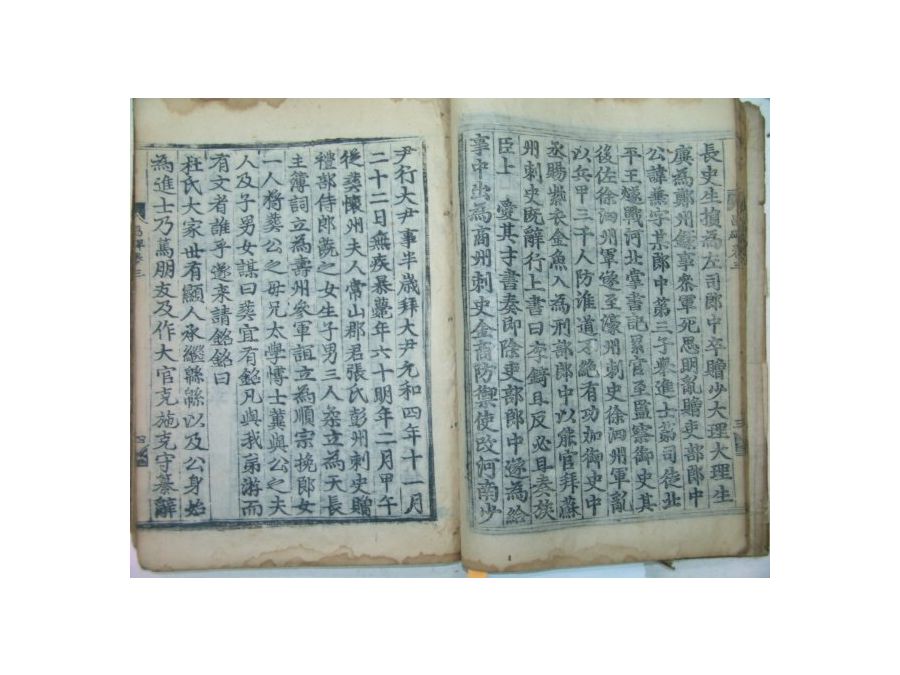 長史生損為左司郎中卒贈少大理大理生
廙為鄭州錄事叅軍死思明亂贈吏部郎中
公諱兼字某郎中第三子舉進士第司徒北
平王燧戰河北掌書記累官至監察御史其
後佐徐泗州軍遂至濠州刺史徐泗州軍亂
以兵甲三千人防淮道不絕有功加御史中
丞賜紫衣金魚入為刑部郎中以能官拜蘇
州刺史既辭行上書曰李錡且反必且奏族
臣上 愛其才書奏即除吏部郎中遂為給
事中出為商州刺史金商防禦使改河南少
尹行大尹 事半歲拜大尹元和四年十一月
二十二日無疾暴薨年六十明年二月甲午
從葬懷州夫人常山郡君張氏彭州刺史贈
禮部侍郎薿之女生子男三人柔立為天長
主簿詞立為壽州參軍誼立為順宗挽郎女
一人將葬公之母兄太學博士冀與公之夫
人及子男女謀曰葬宜有銘凡與我弟游而
有文者誰乎遂來請銘銘曰
杜氏大家世有顯人承繼緜緜以及公身始
為進士乃篤朋友及作大官克施克守纂辭